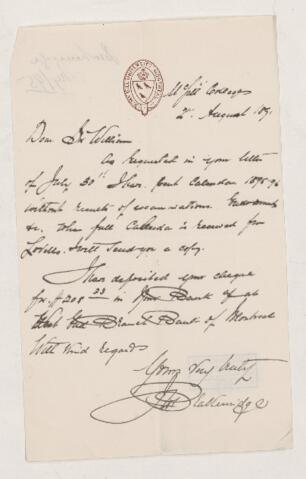 McGill College
2nd August 189
Dear Sir William
As requested in your letter
of July 30th I have sent Calendar 1895-96
without results of examinations
&c. When full Calendar is received from
Lovells I will send you a copy.
I have deposited your cheque
for $208 23 in your Bank at
West End Branch Bank of Montreal
With kind regards
Yours very truly